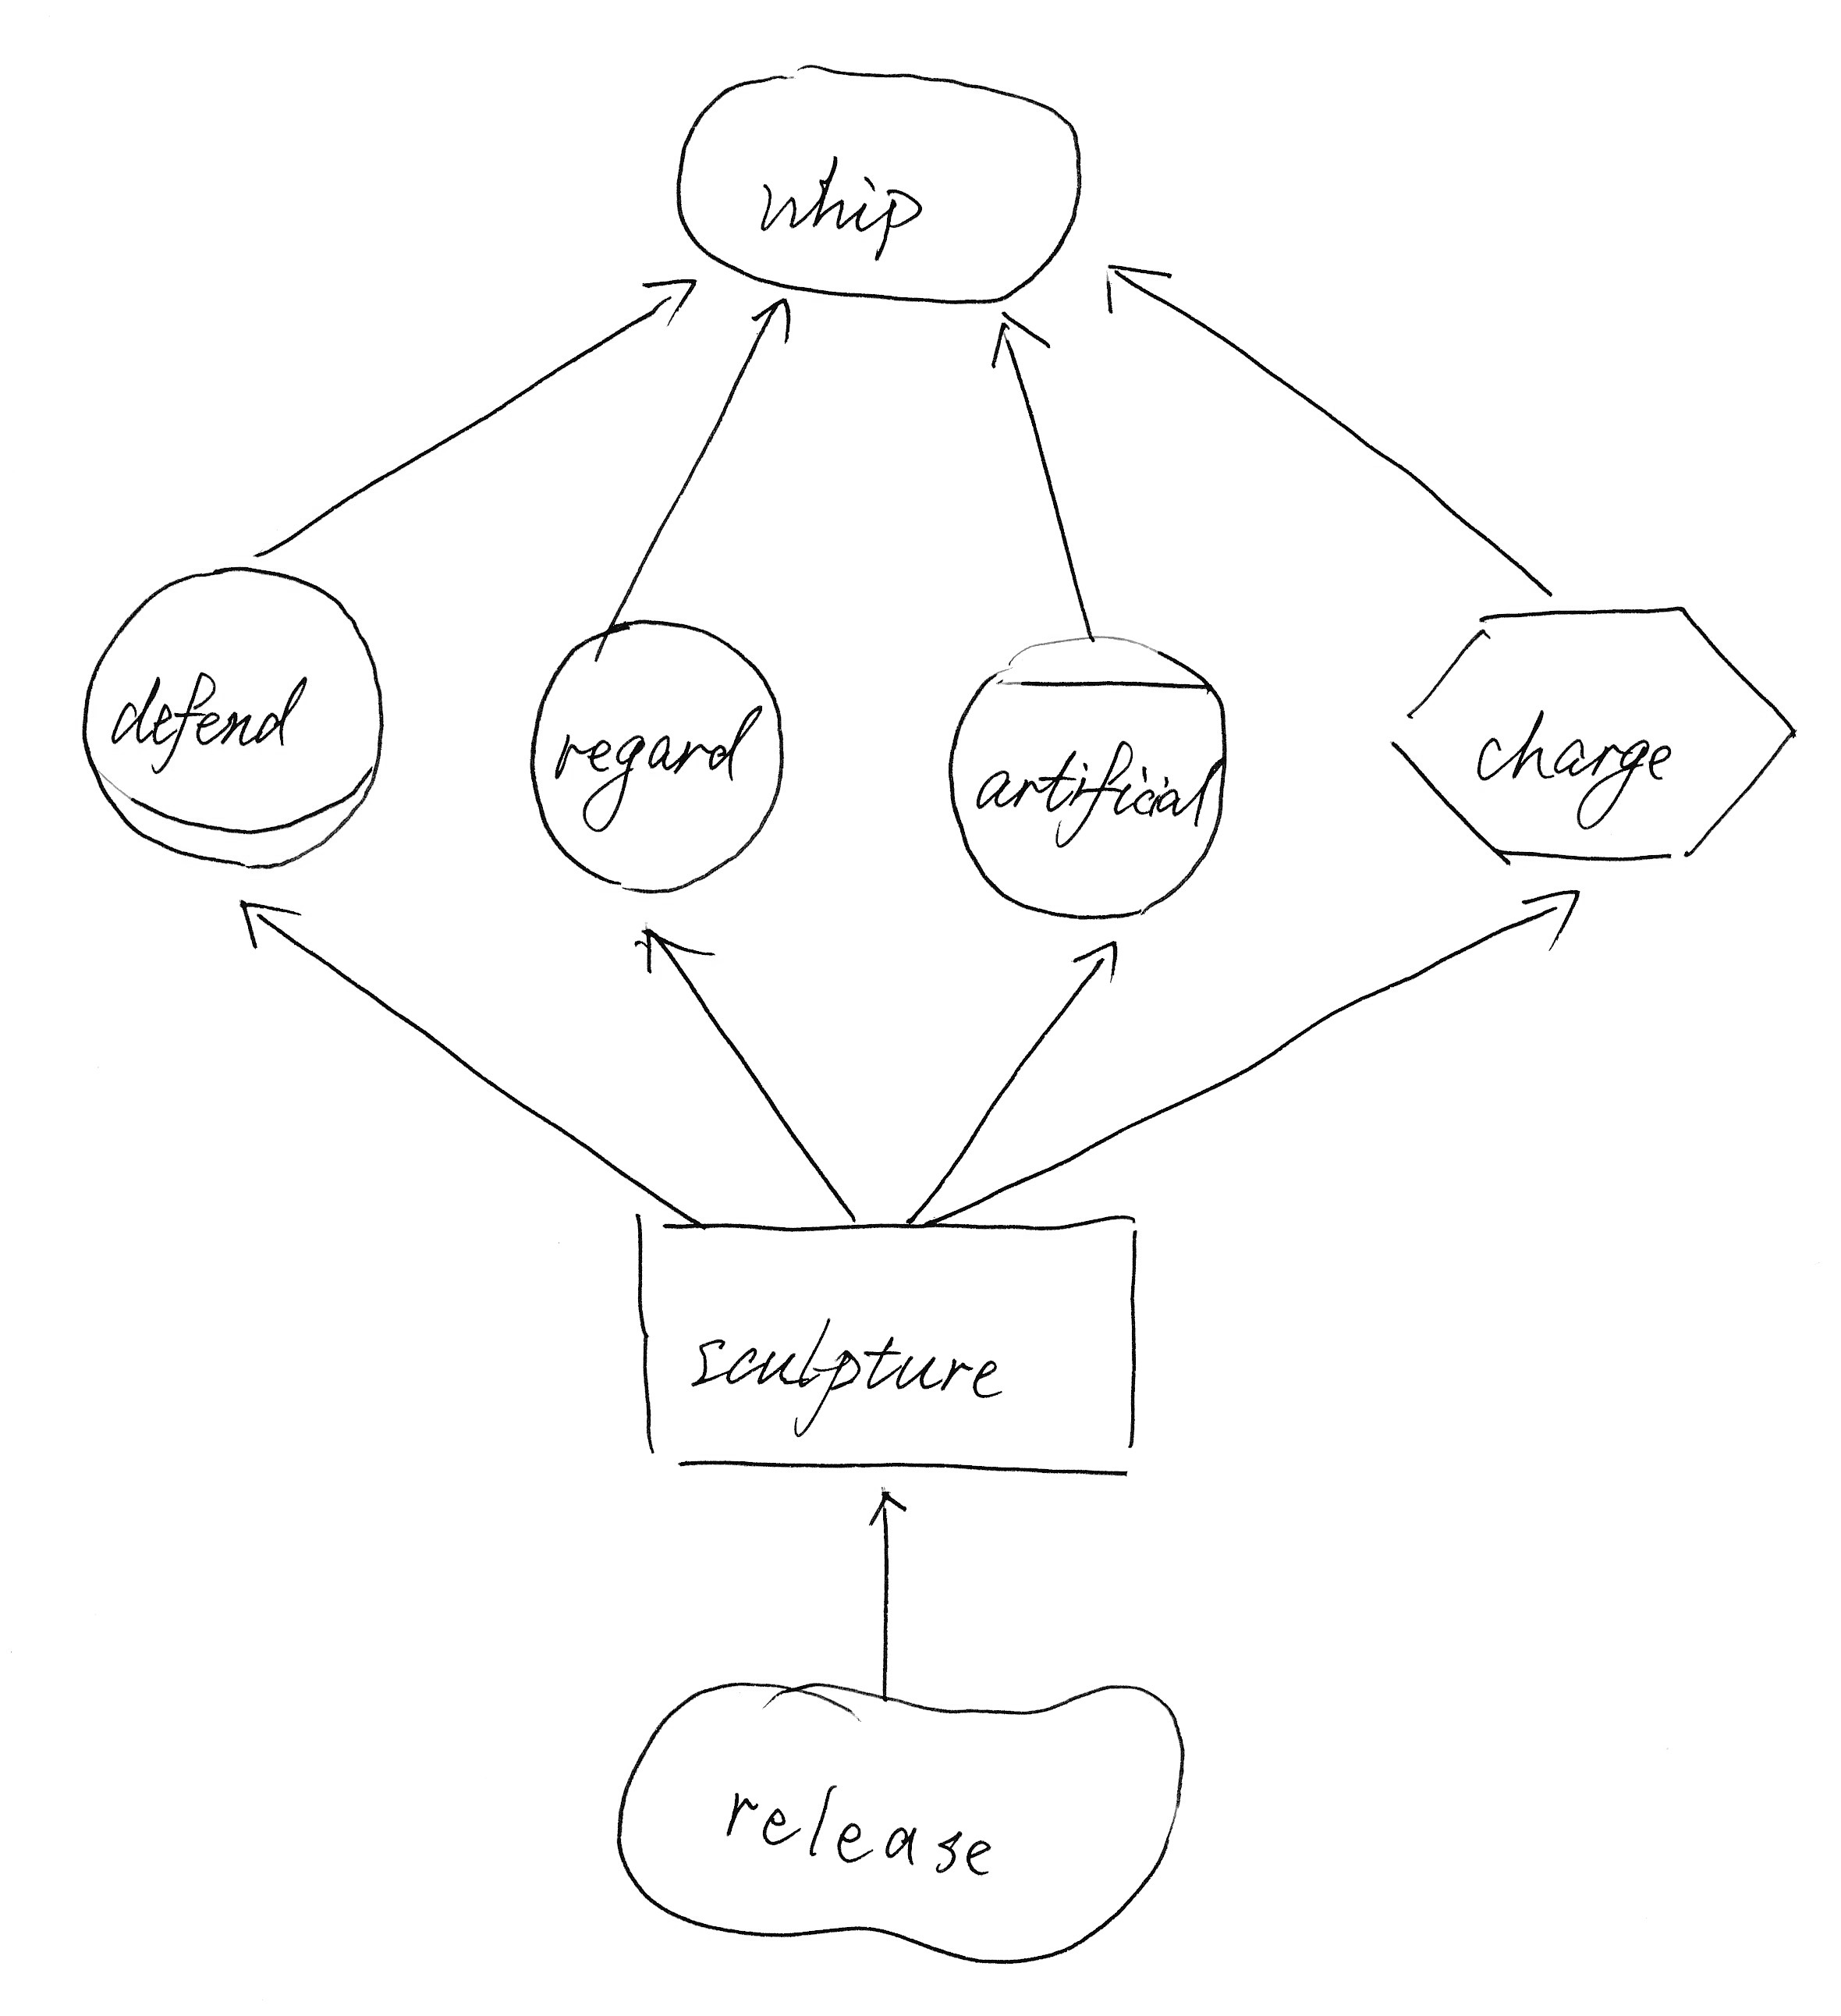 whip
defend
regard
artificial
charge
sculpture
release